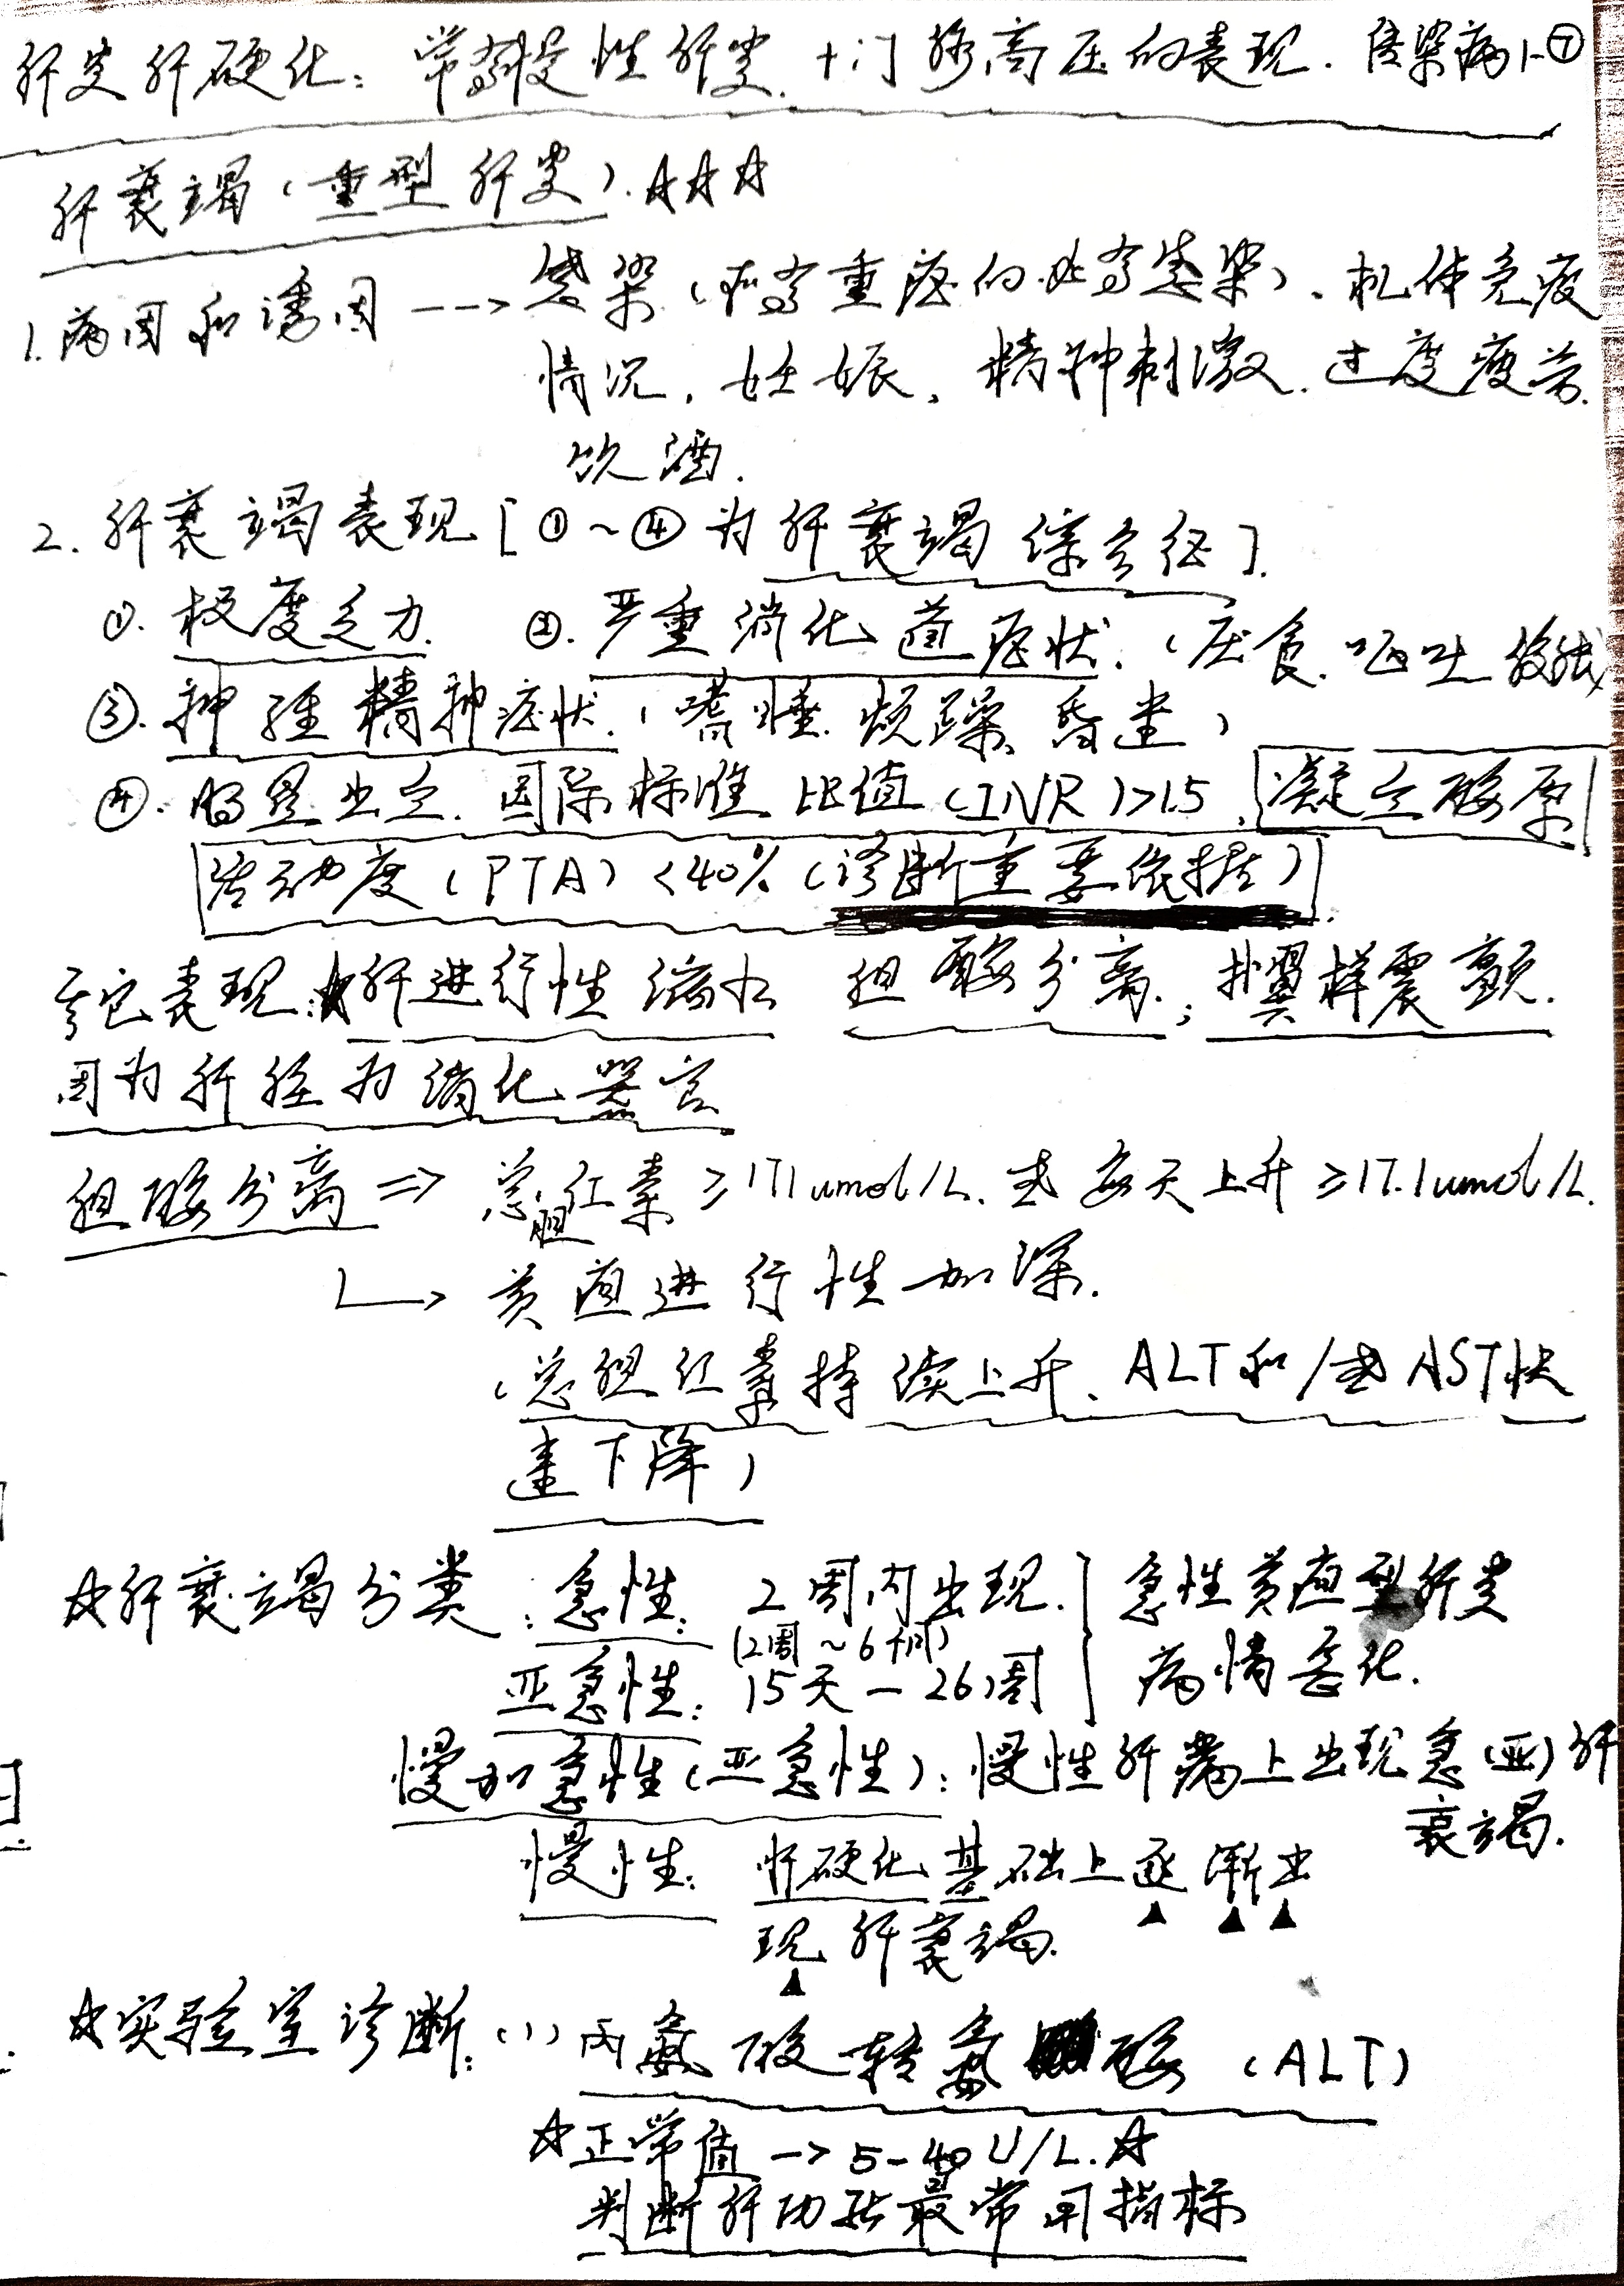 肝炎肝硬化：常有慢性肝炎.+门脉高压的表现. 传染病1-⑦
肝衰竭（重型肝炎）.☆☆☆
1.病因和诱因 --→ 感染（有重症的必有感染）、机体免疫
情况. 妊娠、精神刺激.过度疲劳.
饮酒.
2. 肝衰竭表现[①~④为肝衰竭综合征].
①. 极度乏力. ②.严重消化道症状.（厌食.呕吐
③. 神经精神症状.（嗜睡.烦躁、昏迷）
④. 明显出血. 国际标准比值（INR）>1.5、凝血酶原
活动度（PTA）<40%（诊断重要依据）.
其它表现:☆肝进行性缩小 胆酶分离.；扑翼样震颤.
因为肝经为消化器官
胆酶分离 => 总胆红素≥171umol/L.或每天上升≥17.1umol/L.
↳ 黄疸进行性加深.
（总胆红素持续上升、ALT和/或AST快
速下降）
☆肝衰竭分类：急性：2周内出现.} 急性黄疸型肝炎
(2周~6个月)
亚急性：15天－26周 病情恶化.
慢加急性（亚急性）：慢性肝病上出现急(亚)肝
衰竭.
慢性：肝硬化基础上逐渐出
现肝衰竭.
☆实验室诊断：（1）丙氨酸转氨酶（ALT）
☆正常值 → 5-40U/L.☆
判断肝功能最常用指标